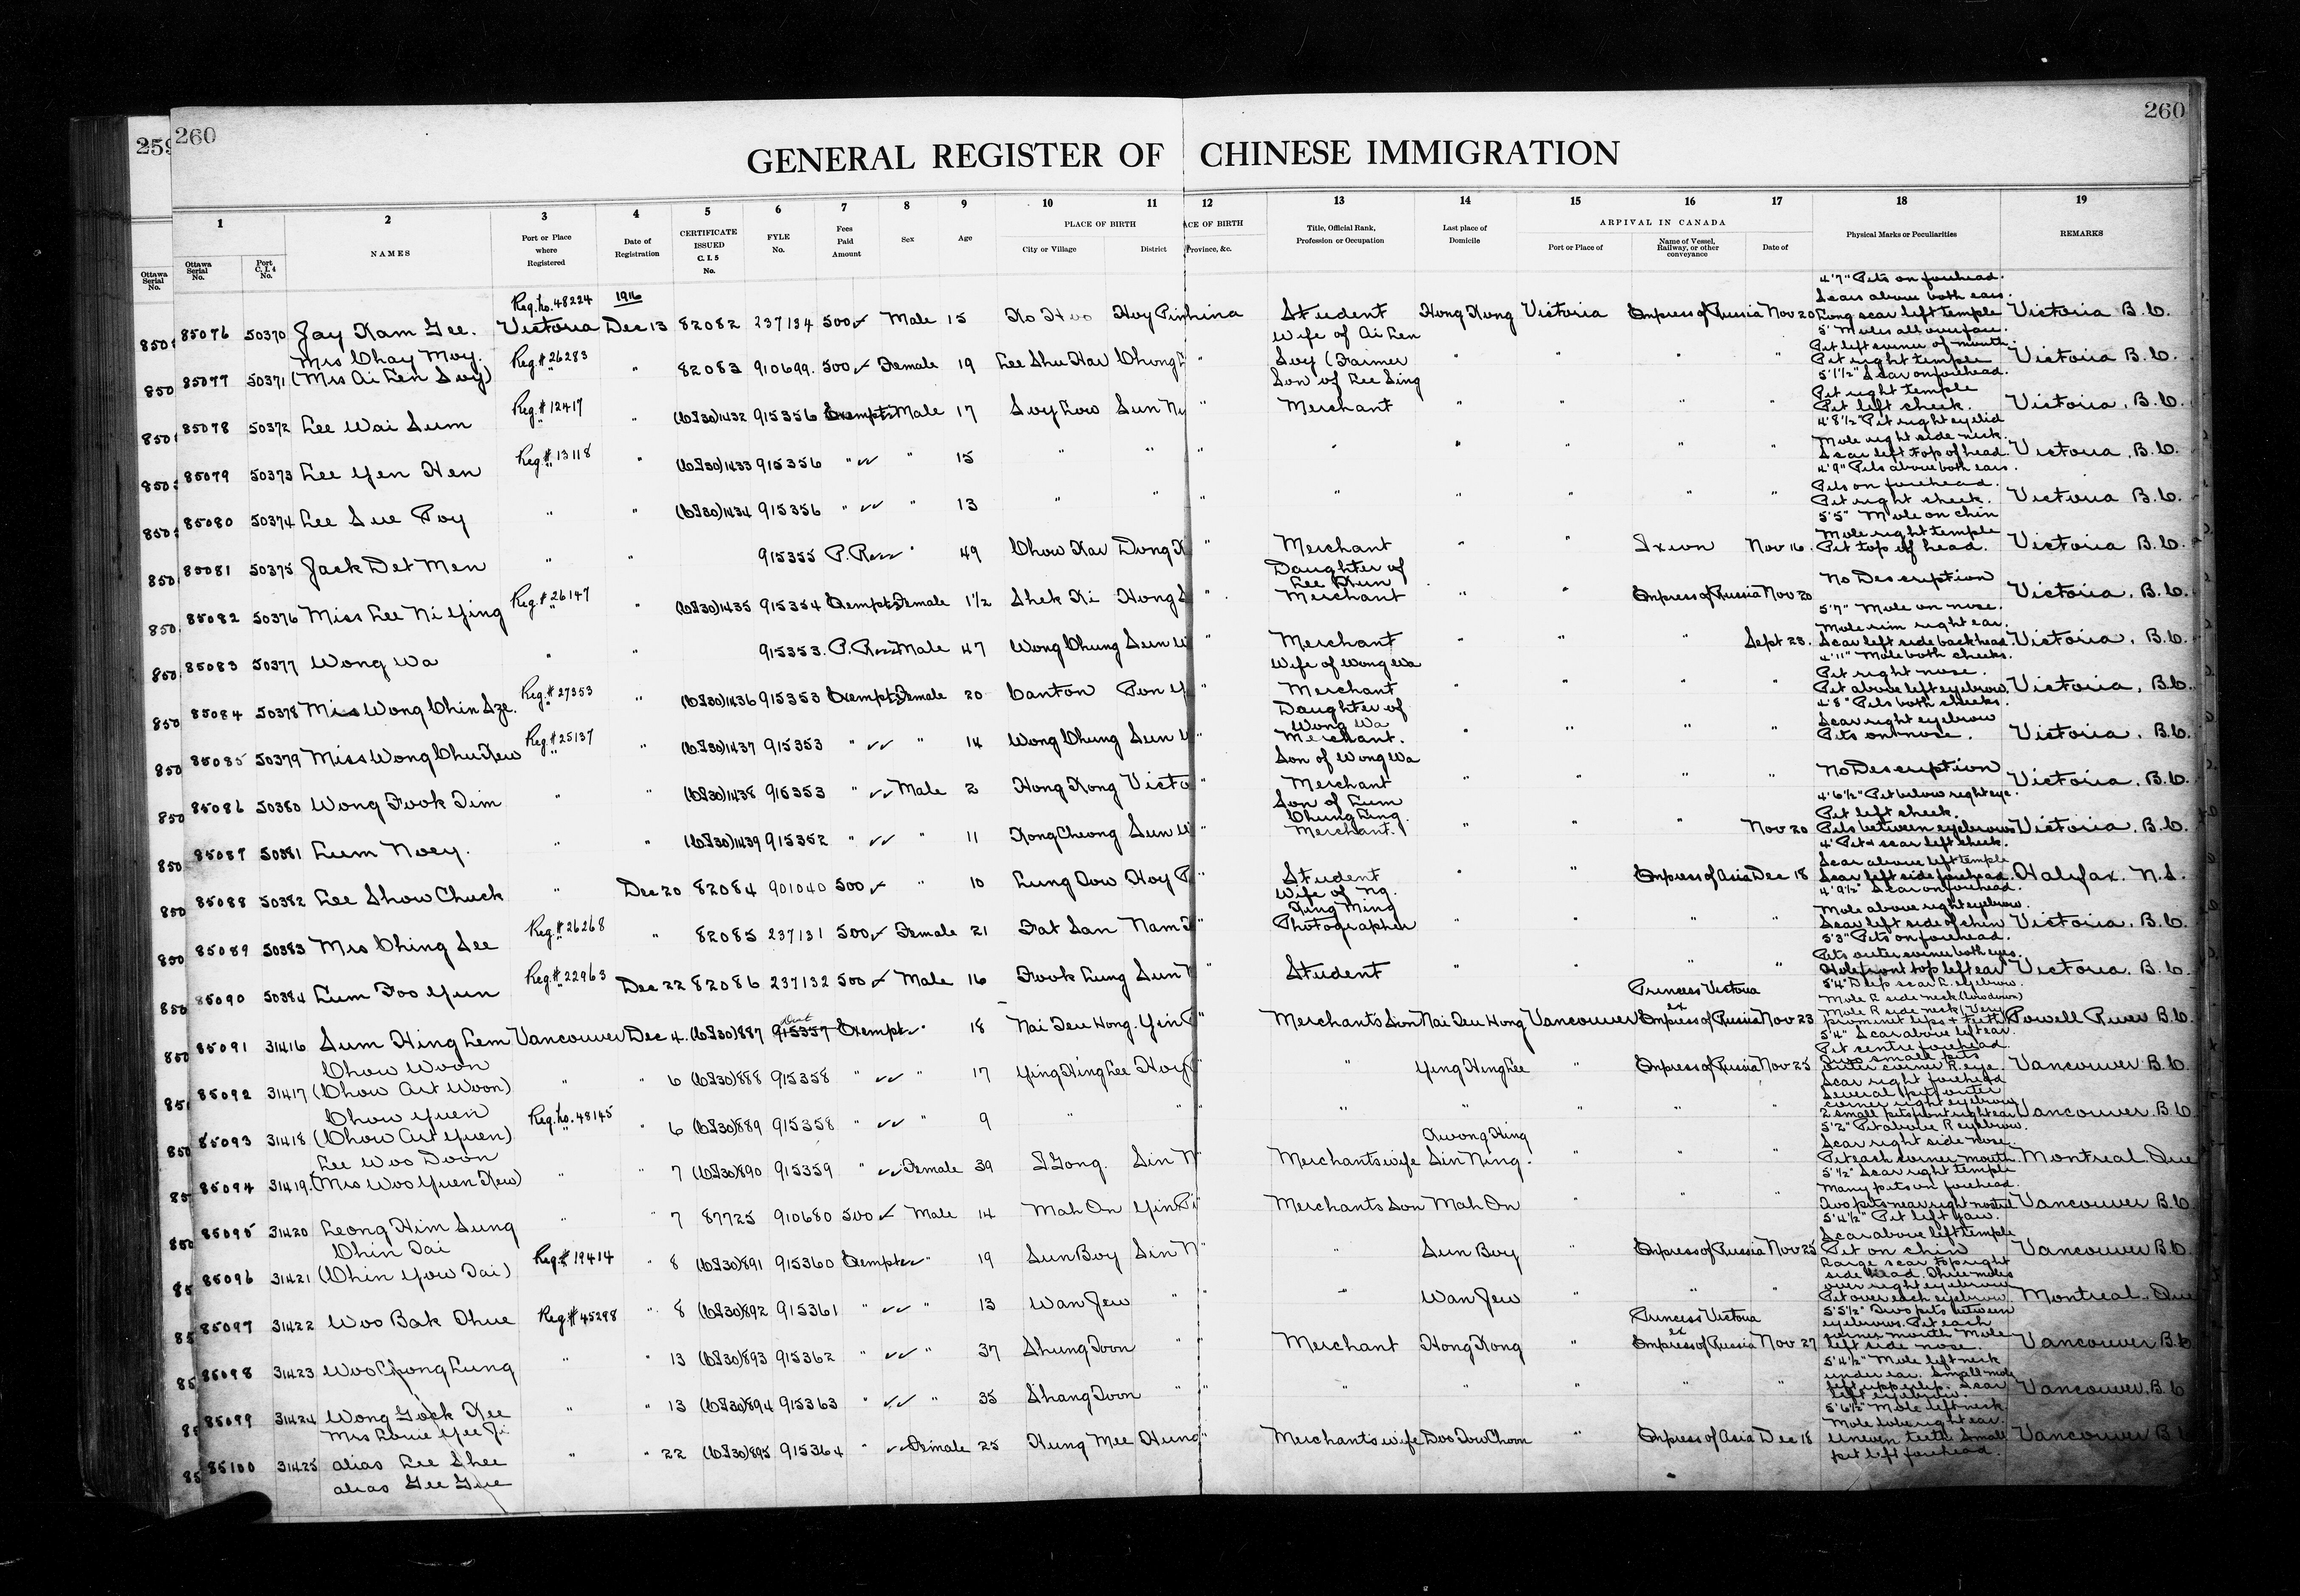 259
260
260
GENERAL REGISTER OF CHINESE IMMIGRATION
1 2 3 4 5 6 7 8 9 10 11 12 13 14 15 16 17 18 19
Ottawa Serial No.
Ottawa Serial No. Port C.I. 4 No. NAMES Port or Place where Registered Date of Registration CERTIFICATE ISSUED C.I. 5 No. FYLE No. Fees Paid Amount Sex Age PLACE OF BIRTH City or Village District ACE OF BIRTH Province, &c. Title, Official Rank, Profession or Occupation Last place of Domicile ARRIVAL IN CANADA Port or Place of Name of Vessel, Railway, or other conveyance Date of Physical Marks or Peculiarities REMARKS
Reg. No. 48224 1916 4'7" Pits on forehead. Scars above both ears.
85076 50370 Jay Kam Gee. Victoria Dec 13 82082 237134 500 ✓ Male 15 Ko Hoo Hoy Pin hina Student Hong Kong Victoria Empress of Russia Nov 20 Long scar left temple Victoria B.C.
Mrs Chay Moy. Reg. # 26283 Wife of Ai Len 5' Moles all over face. Pit left corner of mouth
85077 50371 (Mrs Ai Len Soy) " " 82083 910699. 500 ✓ Female 19 Lee Shu Har Chong " Soy (Farmer " " " " Pit right temple Victoria B.C.
Reg. # 12417 Son of Lee Sing 5'1½" Scar on forehead. Pit right temple
85078 50372 Lee Wai Sum " " (C.I.30)1432 915356 Exempt Male 17 Soy Low Sun Ny " Merchant " " " " Pit left cheek. Victoria, B.C.
Reg. # 13118 4'8½" Pit right eyelid Mole right side neck.
85079 50373 Lee Yen Hen " " (C.I.30)1433 915356 " ✓✓ " 15 " " " " " " " " Scar left top of head. Victoria, B.C.
4'9" Pits above both ears. Pits on forehead.
85080 50374 Lee Sue Poy " " (C.I.30)1434 915356 " ✓✓ " 13 " " " " " " " " Pit right cheek. Victoria B.C.
5'5" Mole on chin Mole right temple
85081 50375 Jack Det Men " " 915355 " 49 Chow Kai Dong K " Merchant " " Ixion Nov 16. Pit top of head. Victoria B.C.
Reg. # 26147 Daughter of Lee
85082 50376 Miss Lee Ni Ying " " (C.I.30)1435 915354 Exempt Female 1½ Shek Ki Hong S " Merchant " " Empress of Russia Nov 20 No Description Victoria, B.C.
5'7" Mole on nose. Mole rim right ear.
85083 50377 Wong Wa " " 915353. Male 47 Wong Chung Sun W " Merchant " " " Sept 23. Scar left side back head. Victoria, B.C.
Reg. # 27353 Wife of Wong Wa 4'11" Mole both cheeks. Pit right nose.
85084 50378 Mrs Wong Chin Sze. " " (C.I.30)1436 915353 Exempt Female 20 Canton Pon Y " Merchant " " " " Pit above left eyebrow. Victoria, B.C.
Reg. # 25137 Daughter of Wong Wa 4'8" Pits both cheeks. Scar right eyebrow
85085 50379 Miss Wong Chu Kew " " (C.I.30)1437 915353 " ✓✓ " 14 Wong Chung Sun W " Merchant. " " " " Pits on nose. Victoria, B.C.
Son of Wong Wa
85086 50380 Wong Fook Tim " " (C.I.30)1438 915353 " ✓✓ Male 2 Hong Kong Victo " Merchant " " " " No Description Victoria, B.C.
Son of Lum Chung Ling. 4'6½" Pit below right eye. Pit left cheek.
85087 50381 Lum Noey. " " (C.I.30)1439 915352 " ✓✓ " 11 Kong Cheong Sun W " Merchant. " " " Nov 20 Pits between eyebrows Victoria, B.C.
4' Pit & scar left cheek. Scar above left temple
85088 50382 Lee Show Chuck " Dec 20 82084 901040 500 ✓ " 10 Lung Tow Hoy P " Student " " Empress of Asia Dec 18 Scar left side forehead. Halifax. N.S.
Reg. # 26268 Wife of Ng. King Ming 4'9½" Scar on forehead. Mole above right eyebrow.
85089 50383 Mrs Ching See " " 82085 237131 500 ✓ Female 21 Fat San Nam " Photographer " " " " Scar left side of chin Victoria, B.C.
Reg. # 22963 5'3" Pits on forehead. Pits outer corner both eyes.
85090 50384 Lum Foo Yun " Dec 22 82086 237132 500 ✓ Male 16 Fook Lung Sun " Student " " " " Hole front top left ear Victoria, B.C.
Princess Victoria ex 5'4" Deep scar L. eyebrow. Mole R side neck (low down) Mole R side neck. Very
85091 31416 Sum Hing Lem Vancouver Dec 4. (C.I.30)887 915357 Exempt " 18 Nai Deu Hong. Yin P " Merchants Son Nai Deu Hong Vancouver Empress of Russia Nov 23 prominent lips & teeth Powell River B.C.
Chow Woon 5'4" Scar above left ear. Pit centre forehead. Two small pits
85092 31417 (Chow Art Woon) " " 6 (C.I.30)888 915358 " ✓✓ " 17 Ying Hing Lee Hoy " " Ying Hing Lee " Empress of Russia Nov 25 outer corner R. eye. Vancouver B.C.
Chow Yuen Reg. No. 48145 Scar right forehead Several pits outer corner right eyebrow
85093 31418 (Chow Art Yuen) " " 6 (C.I.30)889 915358 " ✓✓ " 9 " " " " " " " " 2 small pits front right ear Vancouver. B.C.
Lee Woo Doon Kwong Hing 5'2" Pit above R eyebrow. Scar right side nose.
85094 31419. (Mrs Woo Yuen Kew) " " 7 (C.I.30)890 915359 " ✓✓ Female 39 S Gong. Sin N " Merchants wife Sin Ning. " " " Pit each corner mouth. Montreal. Que
5'½" Scar right temple Many pits on forehead.
85095 31420 Leong Him Sung " " 7 87725 910680 500 ✓ Male 14 Mah On Yin Pi " Merchants Son Mah On " " " Two pits near right nostril Vancouver B.C.
Chin Dai Reg. # 19414 5'4½" Pit left jaw. Scar above left temple
85096 31421 (Chin Yow Dai) " " 8 (C.I.30)891 915360 Exempt " 19 Sun Boy Sin N " " Sun Boy " Empress of Russia Nov 25 Pit on chin Vancouver B.C.
Large scar top right side head. Three moles over right eyebrow
85097 31422 Woo Bak Chue Reg. # 45298 " 8 (C.I.30)892 915361 " ✓✓ " 13 Wan Jew " " " Wan Jew " " " Pit over each eyebrow. Montreal. Que
Princess Victoria ex 5'5½" Two pits between eyebrows. Pit each corner mouth. Mole
85098 31423 Woo Chong Lung " " 13 (C.I.30)893 915362 " ✓✓ " 37 Shung Doon " " Merchant Hong Kong " Empress of Russia Nov 27 left side nose. Vancouver B.C
5'4½" Mole left neck under ear. Small mole left upper lip. Scar
85099 31424 Wong Gock Kee " " 13 (C.I.30)894 915363 " ✓✓ " 35 Shang Doon " " " " " " " left eyebrow. Vancouver. B.C
Mrs Louie Yee 5'6½" Mole left neck. Mole lobe right ear.
85100 31425 alias Lee Shee " " 22 (C.I.30)895 915364 " ✓✓ Female 25 Hung Mee Hung " Merchants wife Doo Dow Choon " Empress of Asia Dec 18 Uneven teeth. Small Vancouver B
alias Gee Gue pit left forehead.